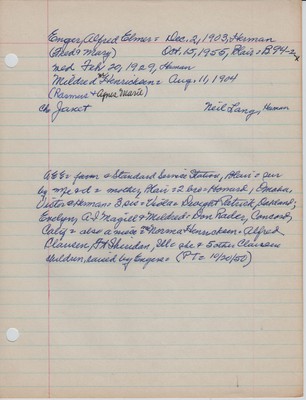 Enger, Alfred Elmer = Dec. 2, 1903, Herman
(Fred & Mary) Oct. 15, 1955, Blair = B94-2
med Feb 20, 1929, Herman
Mildred Henricksen = Aug. 11, 1904
(Rasmus & Agnes Marie)
Ch Janet Neil Lang, Herman
AEE = farm & Standard Service Station, Blair = sur
by wife & d = mother, Blair = 2 bro = Howard, Omaha,
Victor, Herman = 3 sis = Viola = Dwight Patrick, Oakland;
Evelyn, A.J. Magill & Mildred = Don Rader, Concord,
Calif = also a niece = Norma Henricksen = Alfred
Clausen, Ft Sheridan, Ill = she & 5 other Clausen
children, raised by Engers = (PT = 10/20/55)